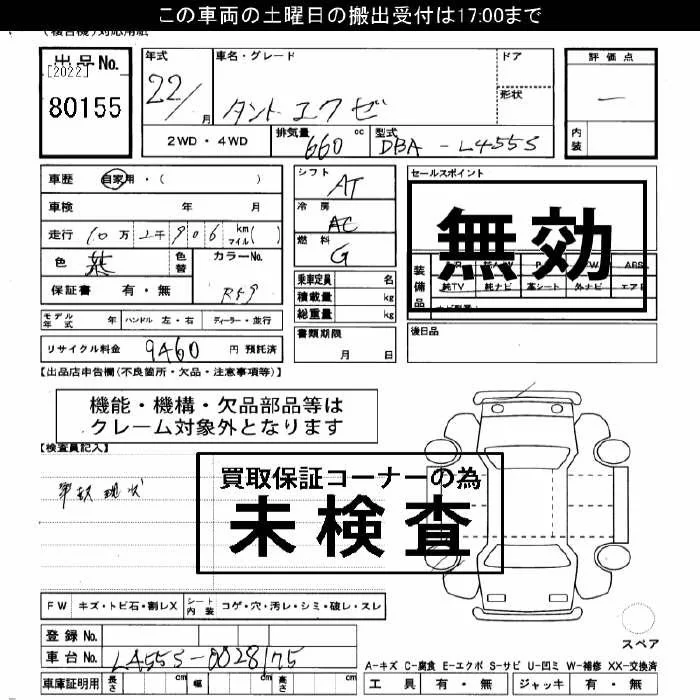 この車両の土曜日の搬出受付は17:00まで
出品No.
[2022]
80155
年式
22/
月
車名・グレード
タントエクゼ
ドア
形状
評価点
内装
2WD・4WD
排気量
660
cc
型式
DBA-L455S
車歴
自家用・( )
車検 年 月
走行 10万 2千 906 km マイル( )
色
紫
色替
カラーNo.
R59
保証書 有・無
モデル年式 年 ハンドル 左・右 ディーラー・並行
リサイクル料金 9460 円 預託済
シフト
AT
冷房
AC
燃料
G
乗車定員 名
積載量 kg
総重量 kg
書類期限
月 日
セールスポイント
無効
装備品
ABS
純TV 純ナビ 革シート 外ナビ エアB
後日品
【出品店申告欄(不良箇所・欠品・注意事項等)】
機能・機構・欠品部品等は
クレーム対象外となります
【検査員記入】
事故現状
買取保証コーナーの為
未検査
FW キズ・トビ石・割レX シート内装 コゲ・穴・汚レ・シミ・破レ・スレ
登録No.
車台No. L455S-0028175
車庫証明用 長さ cm 幅 cm 高さ cm
スペア
A-キズ C-腐食 E-エクボ S-サビ U-凹ミ W-補修 XX-交換済
工具 有・無 ジャッキ 有・無